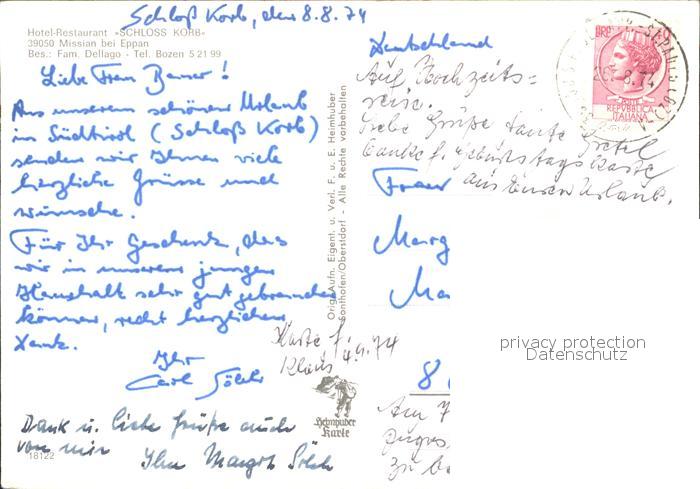 Schloß Korb, den 8.8.74
Hotel-Restaurant »SCHLOSS KORB«
39050 Missian bei Eppan
Bes.: Fam. Dellago - Tel. Bozen 5 21 99
Liebe Frau Bauer!
Aus unserem schönen Urlaub
in Südtirol (Schloß Korb)
senden wir Ihnen viele
herzliche Grüsse und
wünsche.
Für Ihr Geschenk, das
wir in unserem jungen
Haushalt sehr gut gebrauchen
können, recht herzlichen
Dank.
Ihr
Carl
Dank u. liebe Grüße auch
von mir
Ihre Margot
18122
Orig.-Aufn. Eigent. u. Verl. F. u. E. Heimhuber
Sonthofen/Oberstdorf - Alle Rechte vorbehalten
Karte f.
Klaus 4.9.74
Heimhuber
Karte
POSTE
REPUBBLICA
ITALIANA
Deutschland
Auf Hochzeits=
reise.
Liebe Grüße Tante Gretl
Danke f. Geburtstagskarte
aus Eurem Urlaub.
Frau
Marg
Ma
8
zu b
privacy protection
Datenschutz